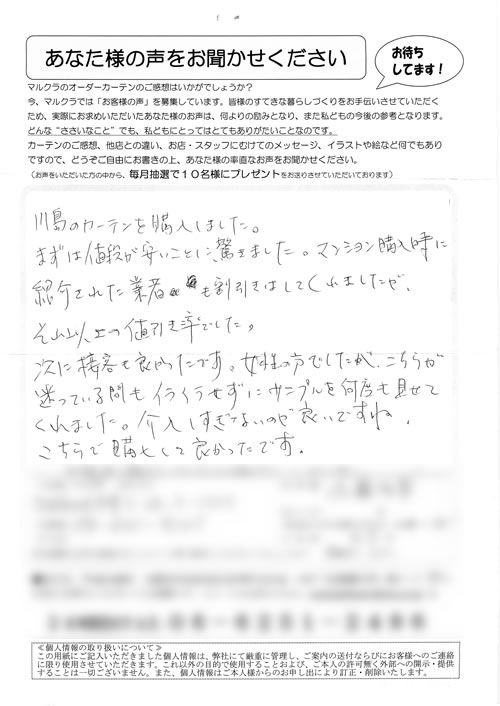 あなた様の声をお聞かせください
お待ち
してます!
マルクラのオーダーカーテンのご感想はいかがでしょうか?
今、マルクラでは「お客様の声」を募集しています。皆様のすてきな暮らしづくりをお手伝いさせていただく
ため、実際にお求めいただいたあなた様のお声は、何よりの励みとなり、また私どもの今後の参考となります。
どんな“ささいなこと”でも、私どもにとってはとてもありがたいことなのです。
カーテンのご感想、他店との違い、お店・スタッフにむけてのメッセージ、イラストや絵など何でもあり
ですので、どうぞご自由にお書きの上、あなた様の率直なお声をお聞かせください。
(お声をいただいた方の中から、毎月抽選で10名様にプレゼントをお送りさせていただいております)
川島のカーテンを購入しました。
まずは値段が安いことに驚きました。マンション購入時に
紹介された業者も割引きはしてくれましたが、
それ以上の値引き率でした。
次に接客も良かったです。女性の方でしたが、こちらが
迷っている間もイライラせずにサンプルを何度も見せて
くれました。介入しすぎないのが良いですね。
こちらで購入して良かったです。
≪個人情報の取り扱いについて≫
この用紙にご記入いただきました個人情報は、弊社にて厳重に管理し、ご案内の送付ならびにお客様へのご連絡
に限り使用させていただきます。これ以外の目的で使用することおよび、ご本人の許可無く外部への開示・提供
することは一切ございません。また、個人情報はご本人様からのお申し出により訂正・削除いたします。